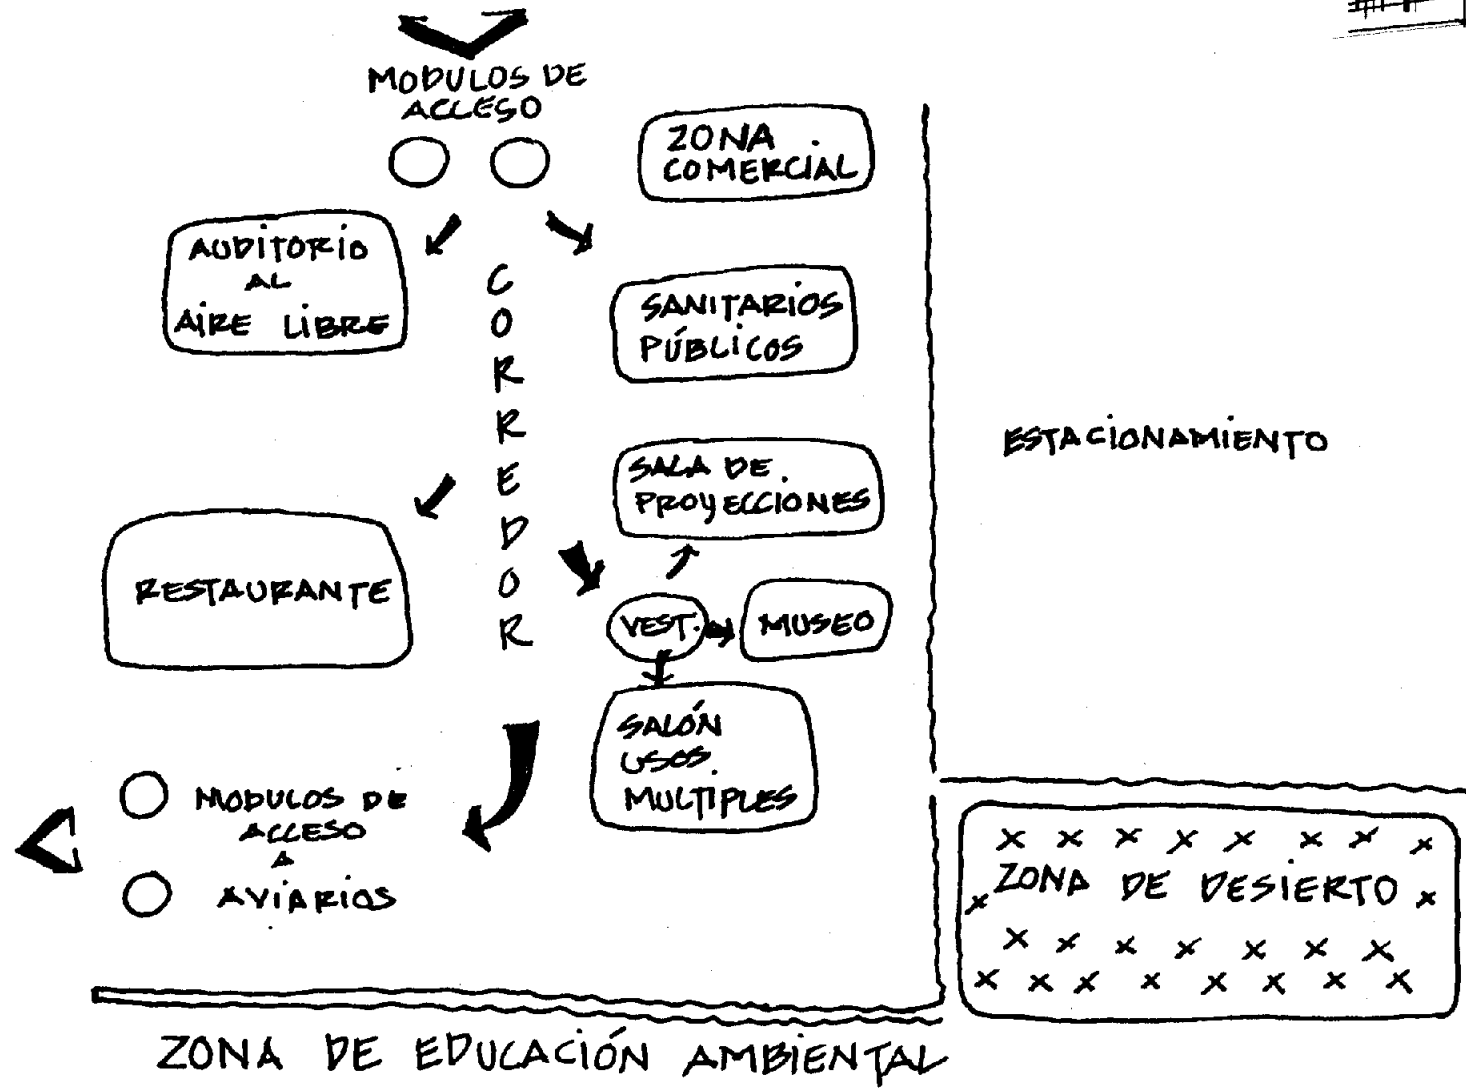 MODULOS DE
ACCESO
ZONA
COMERCIAL
AUDITORIO
AL
AIRE LIBRE
CORREDOR
SANITARIOS
PÚBLICOS
ESTACIONAMIENTO
SALA DE
PROYECCIONES
RESTAURANTE
VEST.
MUSEO
SALÓN
USOS
MULTIPLES
MODULOS DE
ACCESO
A
AVIARIOS
ZONA DE DESIERTO
ZONA DE EDUCACIÓN AMBIENTAL